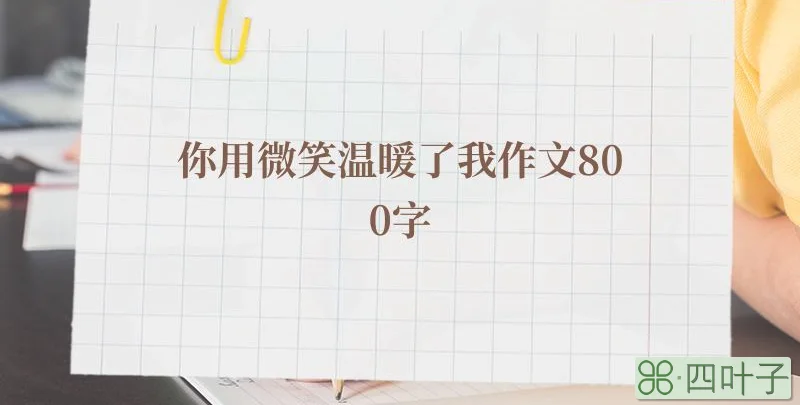 你用微笑温暖了我作文80
0字
⌘·四叶子